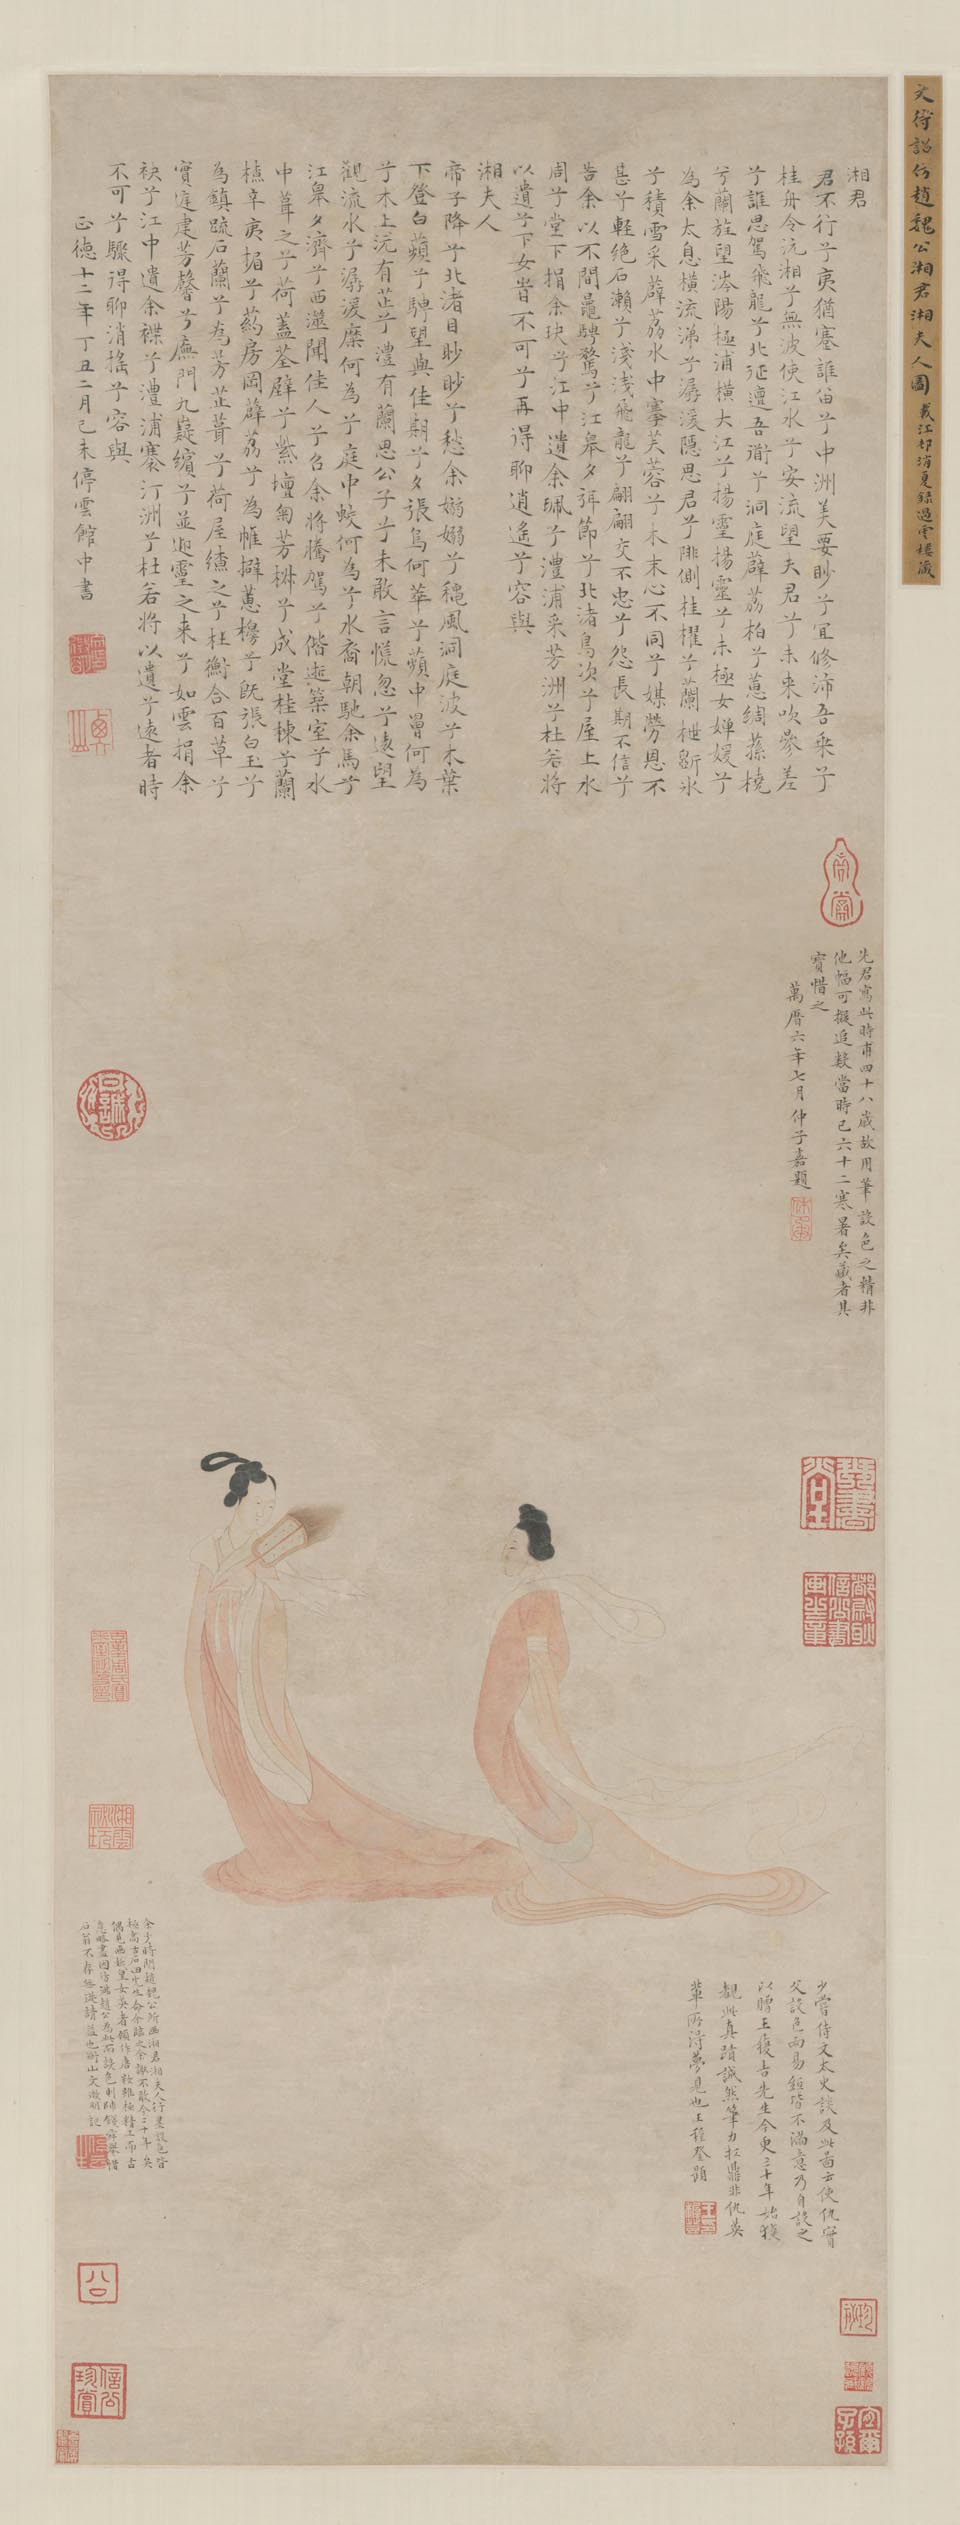 文待詔仿趙魏公湘君湘夫人圖 載江邨消夏錄過雲樓藏
湘君
君不行兮夷猶蹇誰畱兮中洲美要眇兮宜修沛吾乘兮
桂舟令沅湘兮無波使江水兮安流望夫君兮未來吹參差
兮誰思駕飛龍兮北征邅吾道兮洞庭薜荔柏兮蕙綢蓀橈
兮蘭旌望涔陽極浦橫大江兮揚靈揚靈兮未極女嬋媛兮
為余太息橫流涕兮潺湲隱思君兮陫側桂櫂兮蘭枻斲氷
兮積雪采薜荔水中搴芙蓉兮木末心不同兮媒勞恩不
甚兮輕絕石瀨兮淺淺飛龍兮翩翩交不忠兮怨長期不信兮
告余以不閒鼂騁騖兮江皋夕弭節兮北渚鳥次兮屋上水
周兮堂下捐余玦兮江中遺余珮兮澧浦采芳洲兮杜若將
以遺兮下女旹不可兮再得聊逍遙兮容與
湘夫人
帝子降兮北渚目眇眇兮愁余嫋嫋兮穐風洞庭波兮木葉
下登白蘋兮騁望與佳期兮夕張鳥何萃兮蘋中罾何為
兮木上沅有芷兮澧有蘭思公子兮未敢言慌忽兮遠望
觀流水兮潺湲麋何為兮庭中蛟何為兮水裔朝馳余馬兮
江皋夕濟兮西澨聞佳人兮召余將騰駕兮偕逝築室兮水
中葺之兮荷蓋荃壁兮紫壇匊芳椒兮成堂桂棟兮蘭
橑辛夷楣兮葯房罔薜荔兮為帷擗蕙櫋兮既張白玉兮
為鎮疏石蘭兮為芳芷葺兮荷屋繚之兮杜衡合百草兮
實庭建芳馨兮廡門九嶷繽兮並迎靈之来兮如雲捐余
袂兮江中遺余褋兮澧浦搴汀洲兮杜若將以遺兮遠者時
不可兮驟得聊消搖兮容與
正德十二年丁丑二月己未停雲館中書
先君寫此時甫四十八歲故用筆設色之精非
他幅可擬追數當時已六十二寒暑矣藏者其
寶惜之
萬曆六年七月仲子嘉題
少嘗侍文太史談及此圖云使仇實
父設色兩易紙皆不滿意乃自設之
以贈王履吉先生今更三十年始獲
觀此真蹟誠然筆力扛鼎非仇英
輩所得夢見也王穉登題
余少時閱趙魏公所画湘君湘夫人行墨設色皆
極高古石田先生命余臨之余謝不敢今二十年矣
偶見画娥皇女英者顧作唐妝雖極精工而古
意略盡因仿佛趙公為此而設色則師錢舜舉惜
石翁不存無從請益也衡山文徵明記